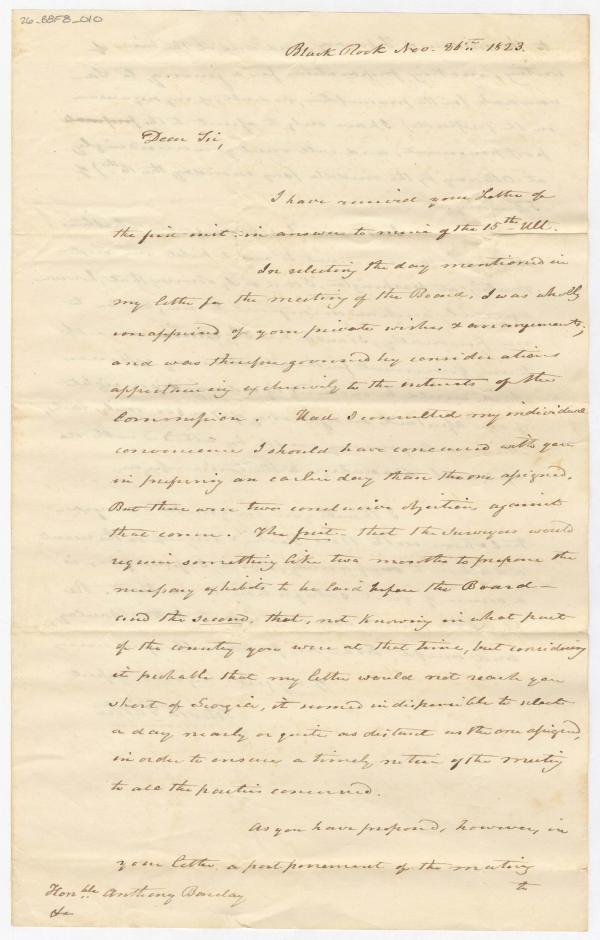 26-BBFB_010
Black Rock Nov. 26th. 1823.
Dear Sir,
I have received your Letter of
the first inst. in answer to mine of the 15th Ult.
In selecting the day mentioned in
my letter for the meeting of the Board, I was wholly
unapprised of your private wishes & arrangements;
and was therefore governed by considerations
appertaining exclusively to the interests of the
Commission. Had I consulted my individual
convenience I should have concurred with you
in preferring an earlier day than the one assigned.
But there were two conclusive objections against
that course. The first - that the Surveyors would
require something like two months to prepare the
necessary exhibits to be laid before the Board -
and the second, that, not knowing in what part
of the country you were at that time, but considering
it probable that my letter would not reach you
short of Georgia, it seemed indispensible to select
a day nearly or quite as distant as the one assigned,
in order to ensure a timely notice of the meeting
to all the parties concerned.
As you have proposed, however, in
your letter a postponement of the meeting
to
Honble. Anthony Barclay
&c